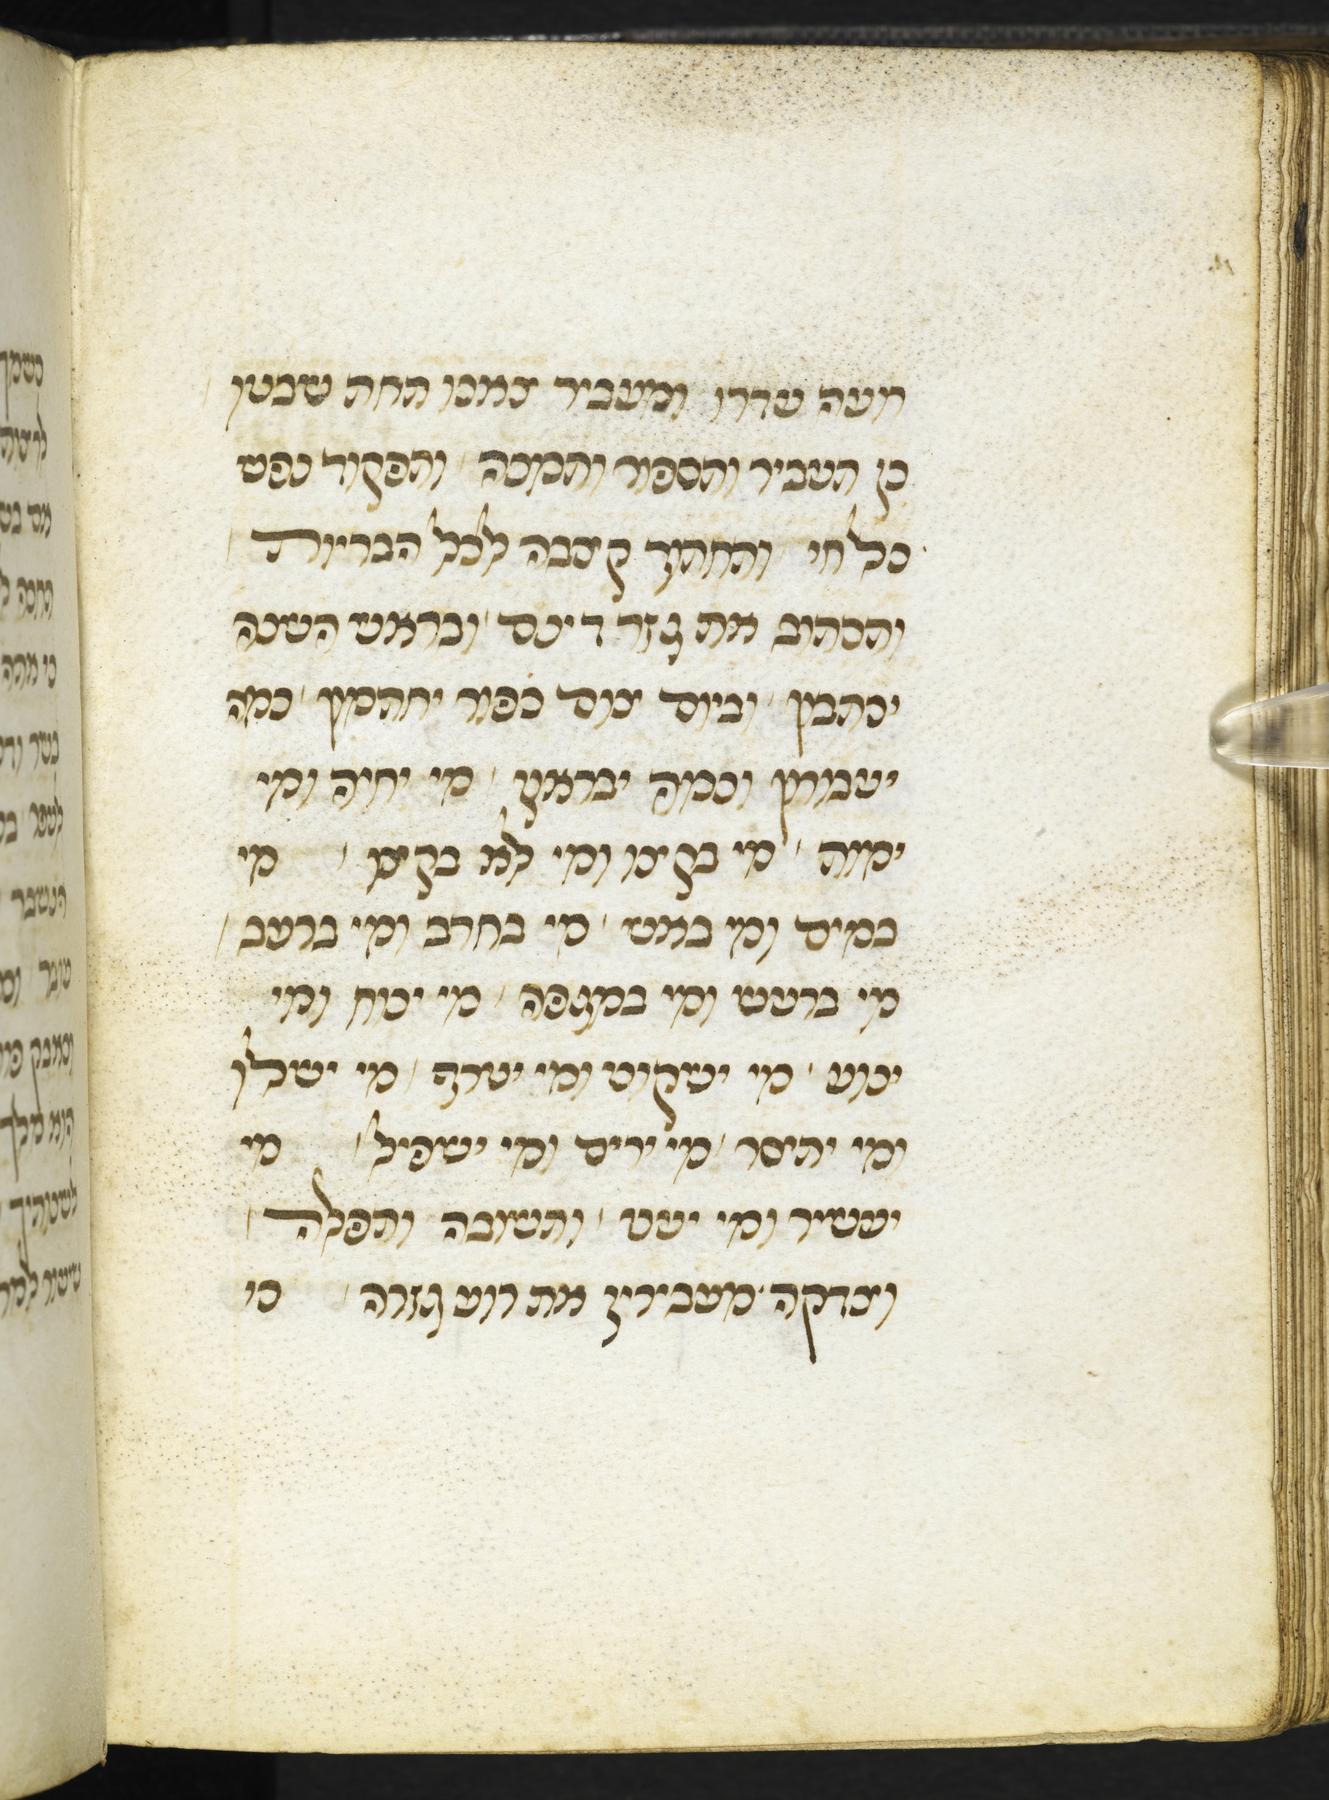 רועה עדרו ומעביר צאנו תחת שבטו
כן תעביר ותספור ותמנה ותפקוד נפש
כל חי ותחתוך קיצבה לכל הבריות
ותכתוב את גזר דינם ובראש השנה
יכתבון וביום צום כפור יחתמון כמה
יעבורון וכמה יבראון מי יחיה ומי
ימות מי בקיצו ומי לא בקיצו מי
במים ומי באש מי בחרב ומי ברעב
מי ברעש ומי במגפה מי ינוח ומי
ינוע מי ישקוט ומי יטרף מי ישלו
ומי יתיסר מי ירים ומי ישפיל מי
יעשיר ומי יעני ותשובה ותפלה
וצדקה מעבירין את רוע גזרה כי